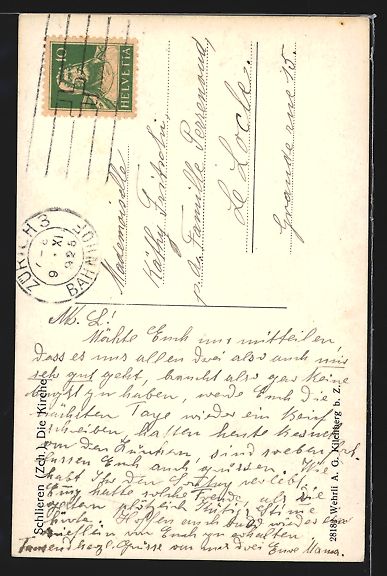 10
HELVETIA
ZÜRICH 3
BAHNHOF
9. XI
1925
Mademoiselle
Käthy
p. a. Famille Perrenoud,
Le Locle.
Grande rue 15.
Schlieren (Zch.) Die Kirche
28184 Wehrli A. G. Kilchberg b. Z.
M. L!
Möchte Euch nur mitteilen,
dass es uns allen drei also auch mir
sehr gut geht, braucht also gar keine
Angst zu haben, werde Euch die
nächsten Tage wieder ein Brief
schreiben. Hatten heute Besuch
von den Zürchern, sind soeben fort
lassen Euch auch grüssen. Wie
habt Ihr den Sonntag verlebt,
hatte solche Freude, als sie
Hoffen auch bald wieder ein
von Euch zu erhalten.
Tausend herzl. Grüsse von uns drei Eure Mama.